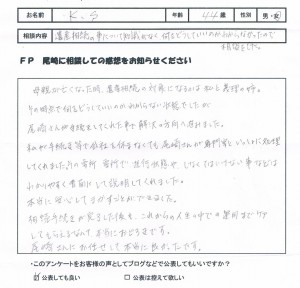 お名前 K.S 年齢 44歳 性別 男・女
相談内容 遺産相続の事について知識がなく何をどうしていいのかわからなかったので
相談をした。
FP 尾崎に相談しての感想をお知らせください
母親が亡くなった時、遺産相続の対象になるのは私と義理の
何をどうしていいのかわからない状態でしたが
尾崎さんが 解決の方向へ進みました。
私が手続き等で会社を休まなくても尾崎さんが専門家といっしょに処理
してくれました。 進行状態や しなくてはいけない事などは
わかりやすく事前にして説明してくれました。
本当に安心してまかすことができました。
相続手続きが完了した後も、これからの人生の中での
してもらえるなんて、本当に
尾崎さんにお任せして本当に良かったです。
・このアンケートをお客様の声としてブログなどで公表してもいいですか？
☑ 公表しても良い □ 公表は控えて欲しい